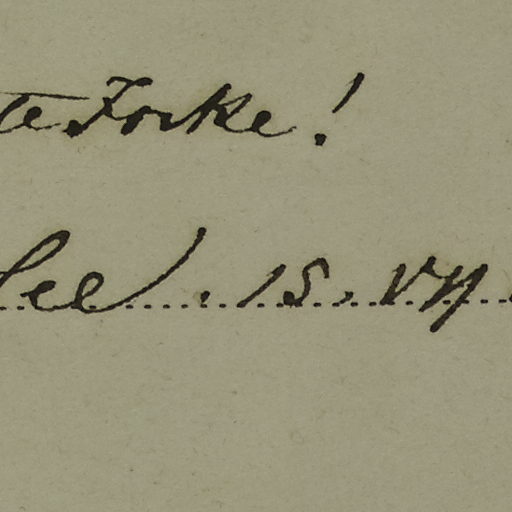 te Forke!
See). 15. VII